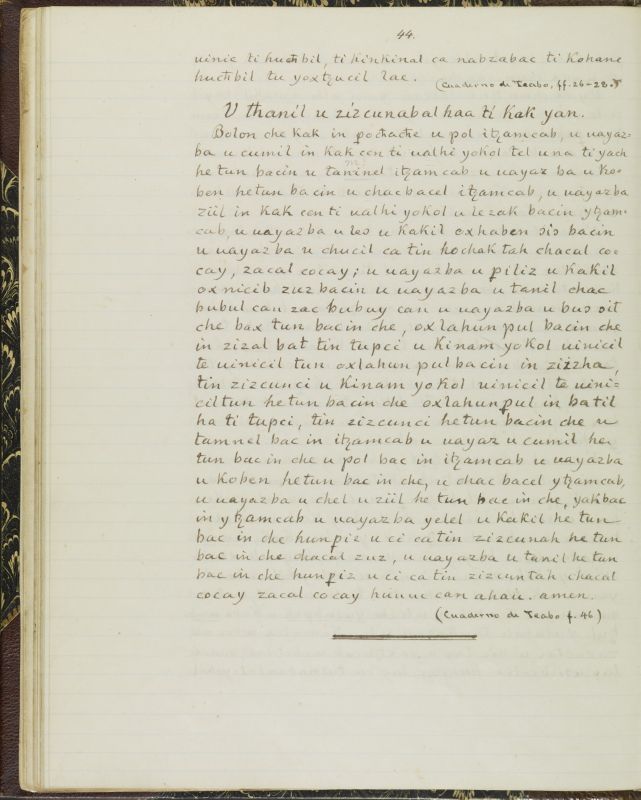 44.
uinic ti huchbil, ti kinkinal ca nabzabac ti kohane
huchbil tu yoxtzucil lae. (Cuaderno de Teabo, ff. 26-28.)
U thanil u zizcunabal haa ti kak yan.
Bolon che kak in pochache u pol itzamcab, u uayaz-
ba u cumil in kak cen ti ualhi yokol tel u na ti yach
he tun bacin u taninel itzamcab u uayaz ba u ko-
ben he tun ba cin u chac bacel itzamcab, u uayazba
ziil in kak cen ti ualhi yokol u lezak bacin ytzam-
cab, u uayazba u les u kakil oxhaben sis bacin
u uayazba u chucil ca tin hochak tah chacal co-
cay, zacal cocay; u uayazba u piliz u kakil
oxnicib zuz bacin u uayazba u tanil chac
bubul can zac bubuy can u uayazba u bus sit
che bax tun bacin che, oxlahun pul bacin che
in zizal bat tin tupci u kinam yokol uinicil
te uinicil tun oxlahun pul bacin in zizha,
tin zizcunci u kinam yokol uinicil te uini=
cil tun he tun bacin che oxlahun pul in batil
ha ti tupci, tin zizcunci he tun bacin che u
tamnel bac in itzamcab u uayaz u cumil he
tun bac in che u pol bac in itzamcab u uayazba
u koben he tun bac in che, u chac bacel ytzamcab,
u uayazba u chel u ziil he tun bac in che, yakbac
in ytzamcab u uayazba yelel u kakil he tun
bac in che hunpiz u ci ca tin zizcunah he tun
bac in che chacal zuz, u uayazba u tanil he tun
bac in che hunpiz u ci ca tin zizcuntah chacal
cocay zacal cocay huuuc can ahau. amen.
(Cuaderno de Teabo f. 46)